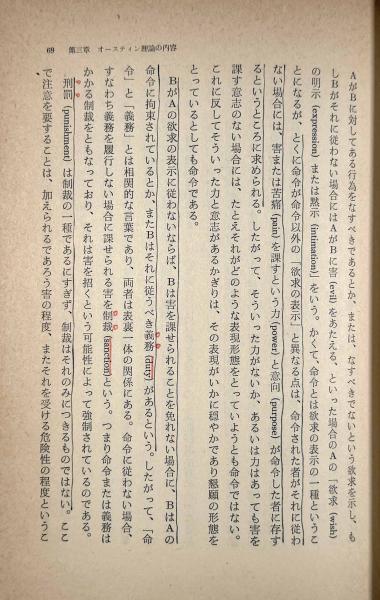 69　第三章　オースティン理論の内容
AがBに対してある行為をなすべきであるとか、または、なすべきでないという欲求を示し、も
しBがそれに従わない場合にはAがBに害(evil)をあたえる、といった場合のAの「欲求(wish)
の明示(expression)または黙示(intimation)」をいう。かくて、命令とは欲求の表示の一種というこ
とになるが、とくに命令が命令以外の「欲求の表示」と異なる点は、命令された者がそれに従わ
ない場合には、害または苦痛(pain)を課すという力(power)と意向(purpose)が命令した者に存す
るというところに求められる。したがって、そういった力がないか、あるいは力はあっても害を
課す意志のない場合には、たとえそれがどのような表現形態をとっていようとも命令ではない。
これに反してそういった力と意志があるかぎりは、その表現がいかに穏やかであり懇願の形態を
とっているとしても命令である。
BがAの欲求の表示に従わないならば、Bは害を課せられることを免れない場合に、BはAの
命令に拘束されているとか、またBはそれに従うべき義務(duty)があるという。したがって、「命
令」と「義務」とは相関的な言葉であり、両者は表裏一体の関係にある。命令に従わない場合、
すなわち義務を履行しない場合に課せられる害を制裁(sanction)という。つまり命令または義務は
かかる制裁をともなっており、それは害を招くという可能性によって強制されているのである。
刑罰(punishment)は制裁の一種であるにすぎず、制裁はそれのみにつきるものではない。ここ
で注意を要することは、加えられるであろう害の程度、またそれを受ける危険性の程度というこ